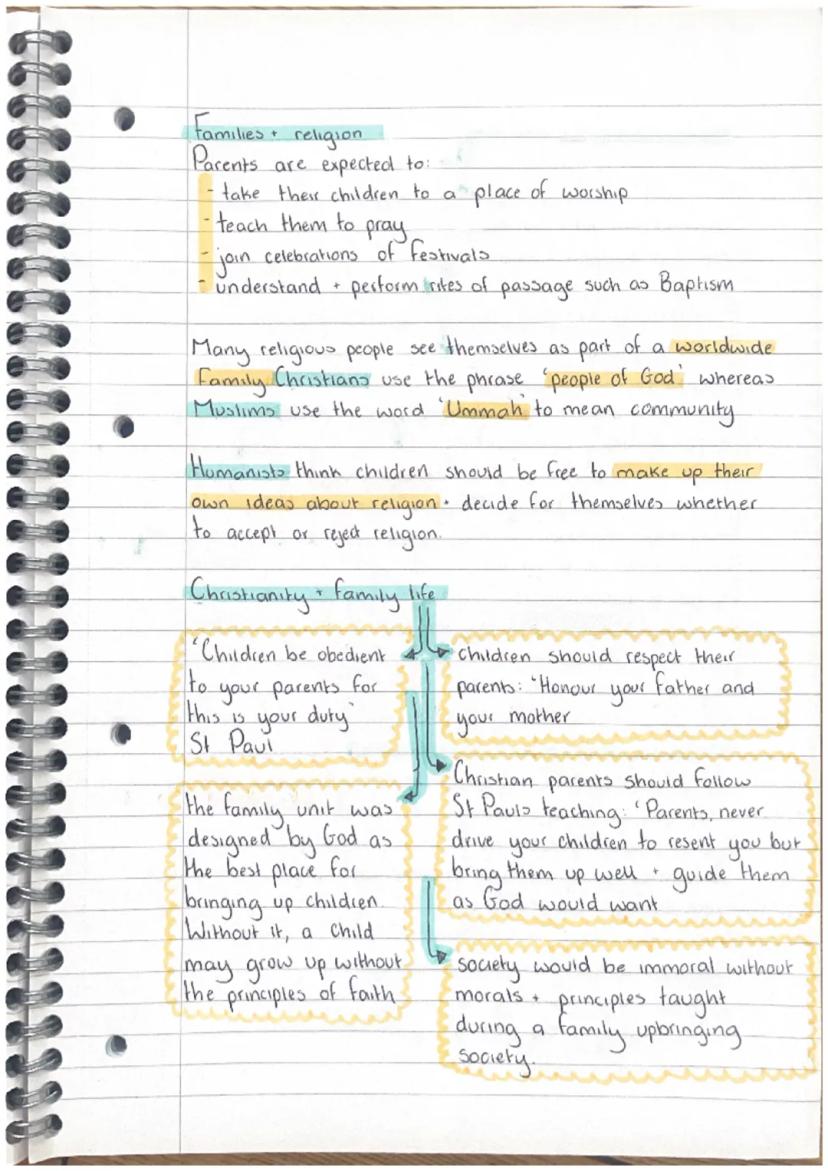 Families + religion
Parents are expected to:
- take their children to a place of worship
- teach them to pray
- join celebrations of festivals
- understand + perform rites of passage such as Baptism
Many religious people see themselves as part of a worldwide
family Christians use the phrase 'people of God' whereas
Muslims use the word 'Ummah' to mean community
Humanists think children should be free to make up their
own ideas about religion + decide for themselves whether
to accept or reject religion.
Christianity + family life
'Children be obedient
to your parents for
this is your duty'
St Paul
children should respect their
parents: 'Honour your father and
your mother
the family unit was
designed by God as
the best place for
bringing up children.
Without it, a child
may grow up without
the principles of faith
Christian parents should follow
St Pauls teaching: 'Parents, never
drive your children to resent you but
bring them up well + guide them
as God would want
society would be immoral without
morals + principles taught
during a family upbringing
society.